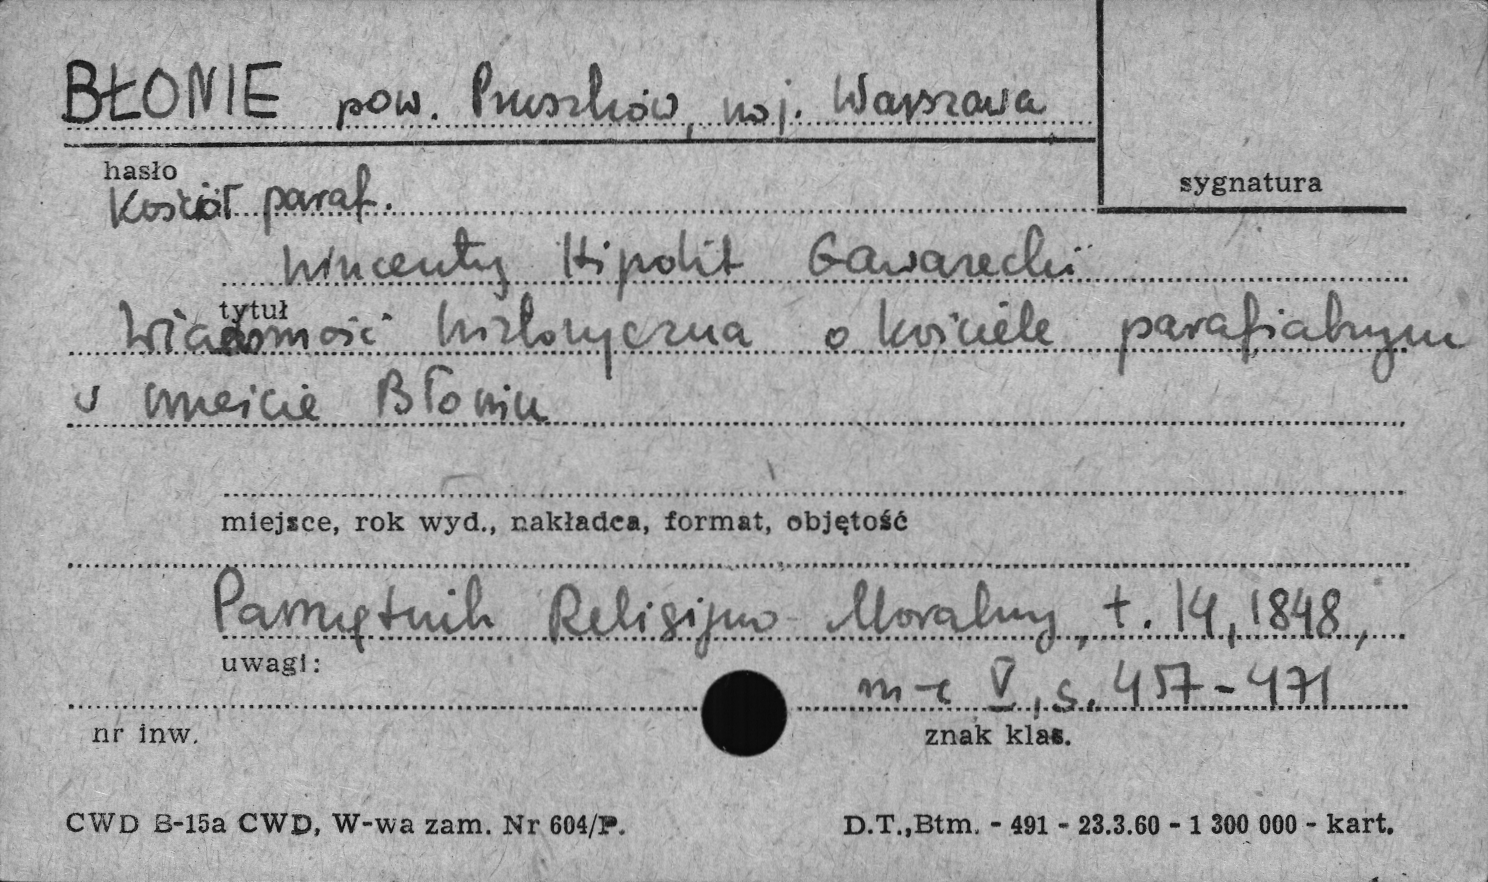 BŁONIE pow. Pruszków, woj. Warszawa
hasło
sygnatura
Kościół paraf.
Wincenty Hipolit Gawarecki
tytuł
Wiadomość historyczna o kościele parafialnym
w mieście Błoniu
miejsce, rok wyd., nakładca, format, objętość
Pamiętnik Religijno-Moralny, t. 14, 1848,
uwagi:
m-c V, s. 457-471
nr inw.
znak klas.
CWD B-15a CWD, W-wa zam. Nr 604/P.
D.T., Btm. - 491 - 23.3.60 - 1 300 000 - kart.